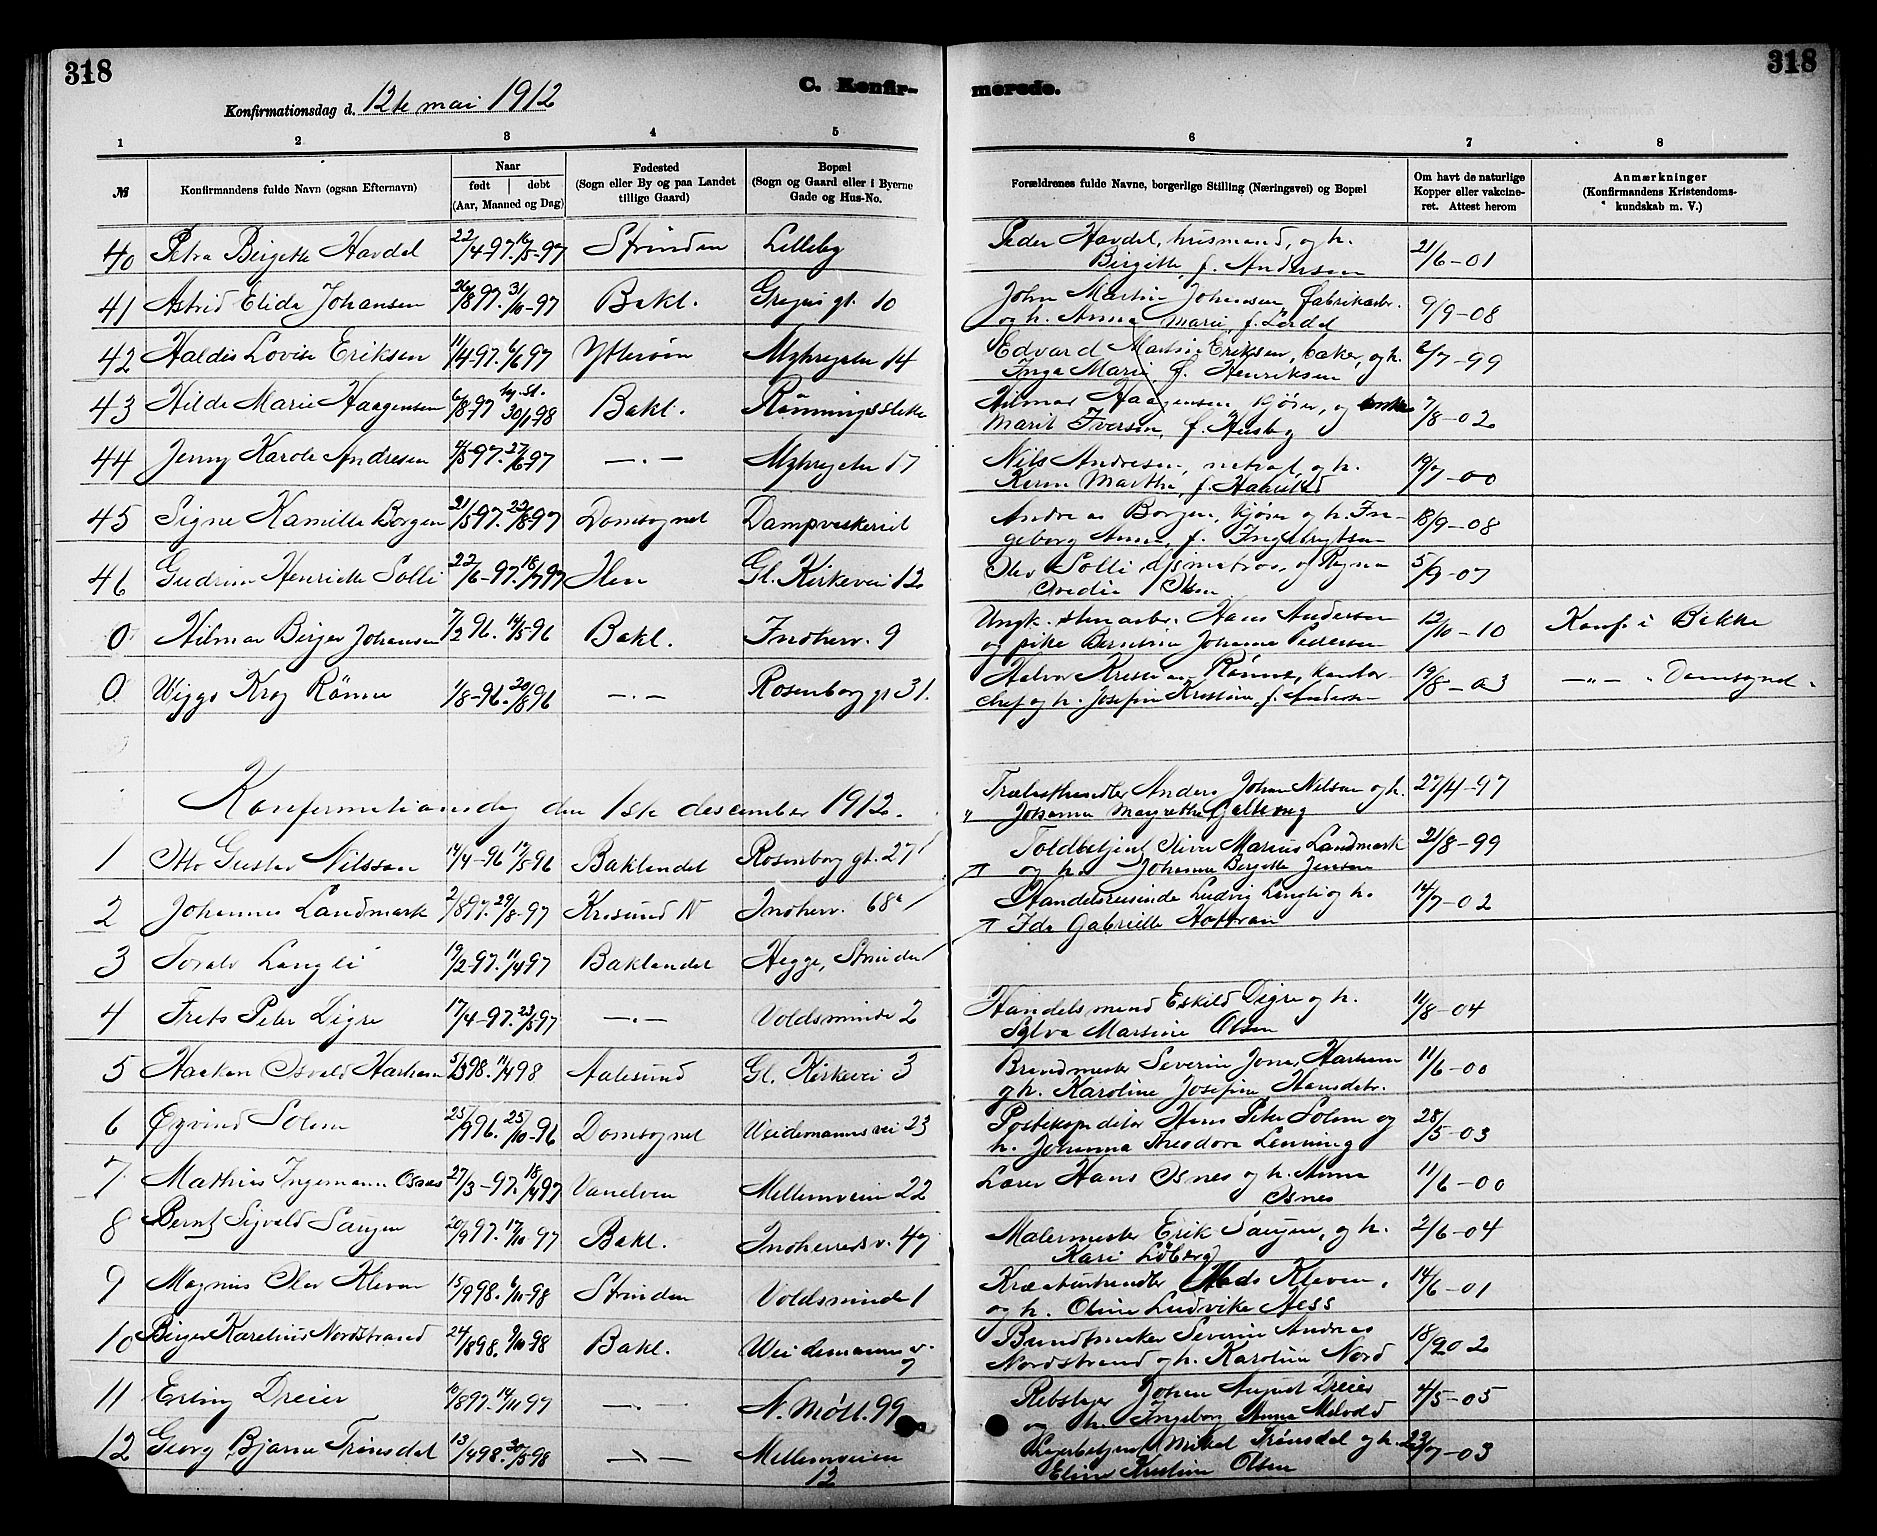 318
C. Konfir-
merede.
318
Konfirmationsdag d. 12te mai 1912
1 2 3 4 5 6 7 8
№
Konfirmandens fulde Navn (ogsaa Efternavn)
Naar
født | døbt
(Aar, Maaned og Dag)
Fødested
(Sogn eller By og paa Landet
tillige Gaard)
Bopæl
(Sogn og Gaard eller i Byerne
Gade og Hus-No.
Forældrenes fulde Navne, borgerlige Stilling (Næringsvei) og Bopæl
Om havt de naturlige
Kopper eller vakcine-
ret. Attest herom
Anmærkninger
(Konfirmandens Kristendoms-
kundskab m. V.)
40 Petra Birgitte Havdal 22/4-97. 16/5-97 Strinden Lilleby Peder Havdal, husmand, og h. 21/6-01
Birgitte, f. Andersen
41 Astrid Elida Johansen 26/8 97. 31/10-97 Bakl. gt. 10 John Martin Johansen, fabrikarbr. 9/9-08
og h. Anna Marie, f. Lerdal
42 Haldis Lovise Eriksen 11/4 97. 6/6 97 Ytterøen 14 Edvard Martin Eriksen, baker, og h. 6/7-99
Inga Marie f. Henriksen
43 Hilda Marie Haagensen 6/8-97 30/1-98 Bakl. Rønningsletta Hilmar Haagensen, kjører, og 7/8-02
Marit Iversen, f. Husby
44 Jenny Karole Andresen 4/5-97. 27/6-97 —.— 17 Nils Andresen, matros, og h. 19/7-00
Marthe, f. Haarstad
45 Signe Kamilla Borgen 21/5 97. 22/8-97 Domsognet Dampvaskeriet Andreas Borgen, kjører og h. In- 18/9-08
geborg Anna, f. Ingebrigtsen
46 Gudrun Henriette Solli 22/6-97. 18/7 97 Ilen Gl. Kirkevei 12 Olav Solli d/s matros, og Ragna 5/9-07
Olsen
0 Hilmar Birger Johansen 7/2 96. 14/5-96 Bakl. Indherv. 9 Ungk. stenarbr. Hans Andersen 12/10-10 Konf. i Bakke
og pike Berntine Johanna Pedersen
0 Wiggo Krog Rønne 1/8-96. 20/8 96 —.— Rosenborg gt 31. Halvor Kristian Rønne, kontor- 19/8-03 —„— „ Domsognet.
chef og h. Josefine Kristine, f. Andersen
Konfirmationsdag den 1ste december 1912.
Trælasthandler Anders Johan Nilsson og h. 27/4-97
„ Johanna Margrethe Galberg
1 Otto Gustav Nilsson 14/4-96 17/5-96 Baklandet Rosenborg gt. 27 Toldbetjent Oliver Marius Landmark 21/8-99
og h. Johanna Birgitte Jensen
2 Johannes Landmark 2/8 97. 29/8-97 Krsund N Indherv. 68a Handelsreisende Ludvig Langli og h. 14/7-02
Ida Gabrielle Hoffran
3 Toralv Langli 19/2-97. 11/4 97 Baklandet Hegge, Strinden
4 Frets Peter Digre 17/4-97. 23/5 97 —.— Voldsminde 2 Handelsmand Eskild Digre og h. 11/8-04
Sylva Marsine Olsen
5 Haakon Osvald Harham 5/3 98. 11/4 98 Aalesund Gl. Kirkevei 3 Brandmester Severin Jonas Harham 11/6-00
og h. Karoline Josefine Hansdtr.
6 Øyvind Solem 25/9 96. 25/10-96 Domsognet Weidemannsvei 23 Postekspeditør Hans Peter Solem og 28/5-03
h. Johanna Theodora Lenning
7 Mathias Ingemann Osnes 27/3-97. 18/4 97 Vanelven Mellemveien 22 Lærer Hans Osnes og h. Anna 11/6-00
Osnes
8 Bernt Sigvald Saugen 20/9 97. 17/10-97 Bakl. Indherredsv. 47 Malermester Erik Saugen, og h. 2/6-04
Kari Løberg
9 Magnus Olav Kleven 15/9 98. 6/11-98 Strinden Voldsminde 1 Kreaturhandler Mads Kleven, 14/6-01
og h. Oline Ludvika Hess
10 Birger Karelius Nordstrand 24/8 98. 9/10-98 Bakl. Weidemannsv. Bundtmaker Severin Andreas 18/9 02
7 Nordstrand og h. Karoline Nord
11 Erling Dreier 10/8 97. 14/11 97 —.— N. Møll. 99 Rebslager Johan August Dreier 4/5-05
og h. Ingeborg Anna Melvold
12 Georg Bjarne Trønsdal 13/4 98. 30/5 98 —.— Mellemveien Lagerbetjent Mikal Trønsdal og h. 23/7-03
12 Elin Kristine Olsen